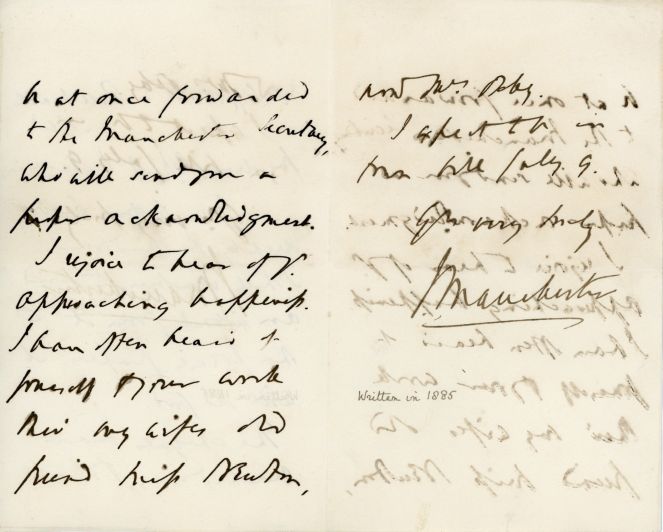 be at once forwarded
to the Manchester Secretary,
who will send you a
proper acknowledgment.
I rejoice to hear of yr.
approaching happiness.
I have often heard of
yourself & your work
thro' my wife's old
friend Miss Newton,
now Mrs
I expect to be in
town till July 9.
Yrs very truly
J. Manchester
Written in 1885